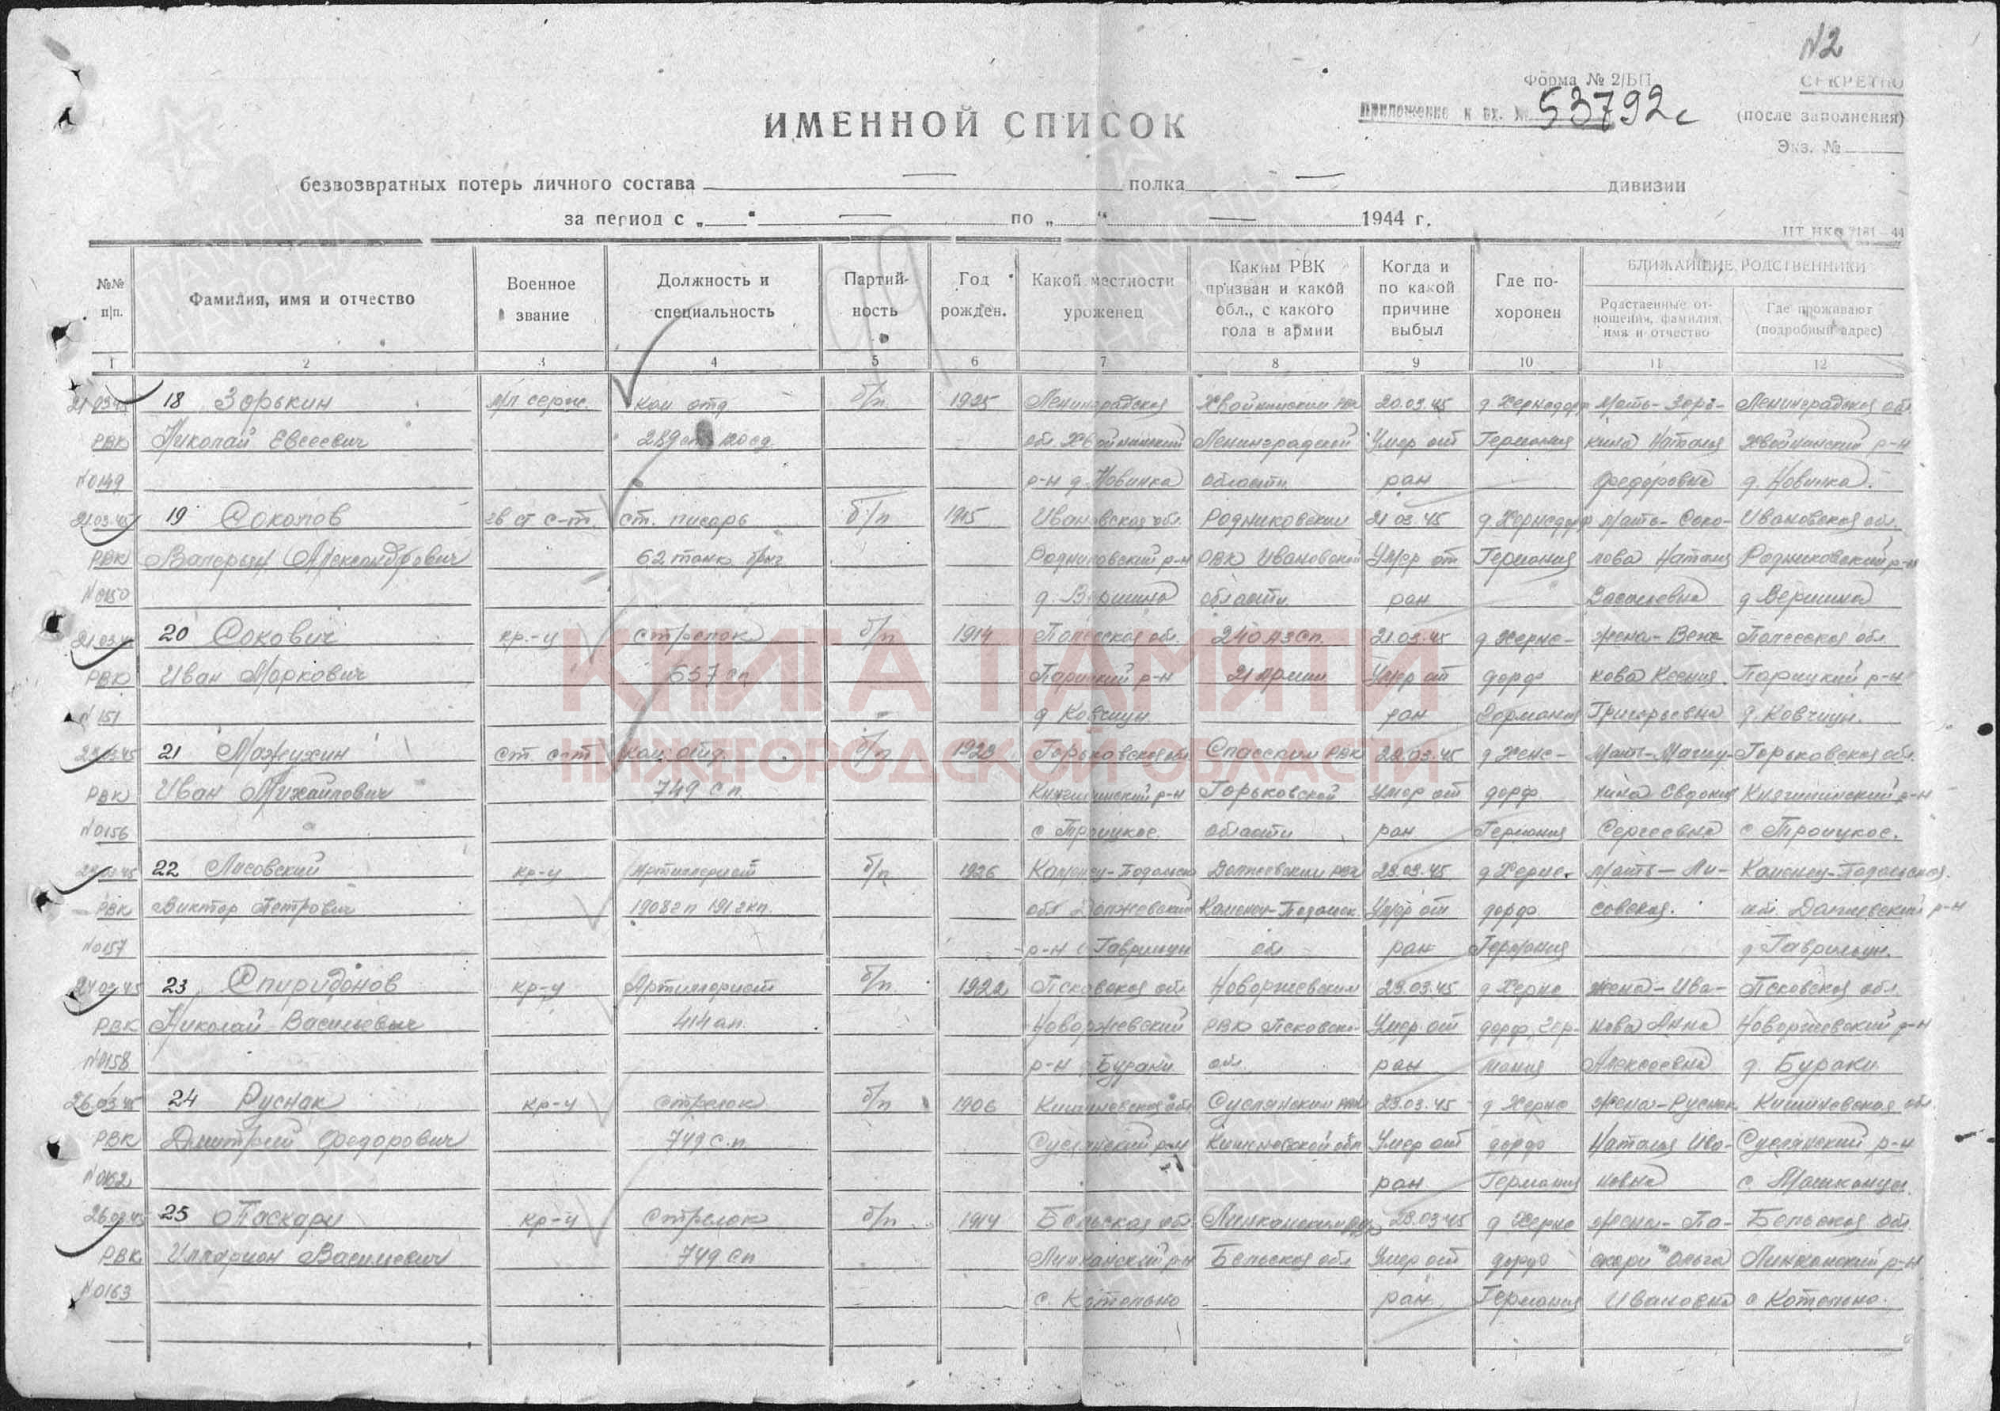 №2
Форма № 2/БП
СЕКРЕТНО
Приложение к вх. № 53792с
(после заполнения)
Экз. №
ИМЕННОЙ СПИСОК
безвозвратных потерь личного состава — полка — дивизии
за период с „ " — по „ " — 1944 г.
№№ п/п. Фамилия, имя и отчество Военное звание Должность и специальность Партий-ность Год рожден. Какой местности уроженец Каким РВК призван и какой обл., с какого года в армии Когда и по какой причине выбыл Где по-хоронен БЛИЖАЙШИЕ РОДСТВЕННИКИ
Родственные от-ношения, фамилия, имя и отчество Где проживают (подробный адрес)
1 2 3 4 5 6 7 8 9 10 11 12
21.03.45 18 Зорькин мл серж. Ком отд б/п 1925 Ленинградская Хвойнинским РВК 20.03.45 Мать-Зорь- Ленинградская обл
РВК Николай Евсеевич обл Хвойнинский Ленинградской Умер от Германия кина Наталья Хвойнинский р-н
№0149 р-н д. Новинка области ран Федоровна д. Новинка.
21.03.45 19 Соколов гв ст с-т. ст. писарь б/п 1915 Ивановская обл. Родниковским 21 03 45 Мать-Соко- Ивановская обл.
РВК Валерьян Александрович 62 танк. бриг Родниковский р-н РВК Ивановской Умер от Германия лова Наталия Родниковский р-н
№0150 д. Вершина области ран Васильевна д Вершина
21.03.45 20 Сокович кр-ц Стрелок б/п 1914 Полесская обл. 240 АЗСП 21.03.45 д Херне- жена- Полесская обл
РВК Иван Маркович 657 сп Парицкий р-н 21 Армии Умер от дорф кова Ксения Парицкий р-н
№ 151 д Ковчицы ран Германия Григорьевна д. Ковчицы.
21 Мажухин ст с-т Ком. отд. б/п 1923 Горьковская обл Спасским РВК 22.03.45 д Херне- Мать- Горьковская обл.
РВК Иван Михайлович 749 с п. Княгининский р-н Горьковской Умер от дорф. хина Евдокия Княгининский р-н
№0156 с Троицкое. области ран Германия Сергеевна с Троицкое.
22 Лисовский кр-ц Артиллерист б/п 1926 Каменец-Подольск 23.03.45 д Херне- Мать-Ли- Каменец-Подольская
РВК Виктор Петрович Каменец-Подольск Умер от дорф совская.
№0157 обл ран Германия
24.03.45 23 Спиридонов кр-ц Артиллерист б/п 1922 Псковская обл Новоржевским 23.03.45 д Херне жена-Ива- Псковская обл.
РВК Николай Васильевич 414 ап. Новоржевский РВК Псковской Умер от дорф, Гер- нова Анна Новоржевский р-н
№0158 р-н д Бураки обл ран мания Алексеевна д. Бураки
26.03.45 24 Руснак кр-ц Стрелок б/п 1906 Кишиневская обл 23.03.45 д Херне Жена-Руснак Кишиневская обл
РВК Дмитрий Федорович 749 с.п. Кишиневской обл Умер от дорф Наталья Ива-
№0162 ран Германия новна
26.03.45 25 Паскари кр-ц Стрелок б/п 1914 Бельская обл 23.03.45 д Херне Жена-Па- Бельская обл.
РВК Илларион Васильевич 749 сп Бельская обл Умер от дорф скари Ольга
№0163 ран Германия Ивановна
КНИГА ПАМЯТИ
НИЖЕГОРОДСКОЙ ОБЛАСТИ
ПАМЯТЬ НАРОДА